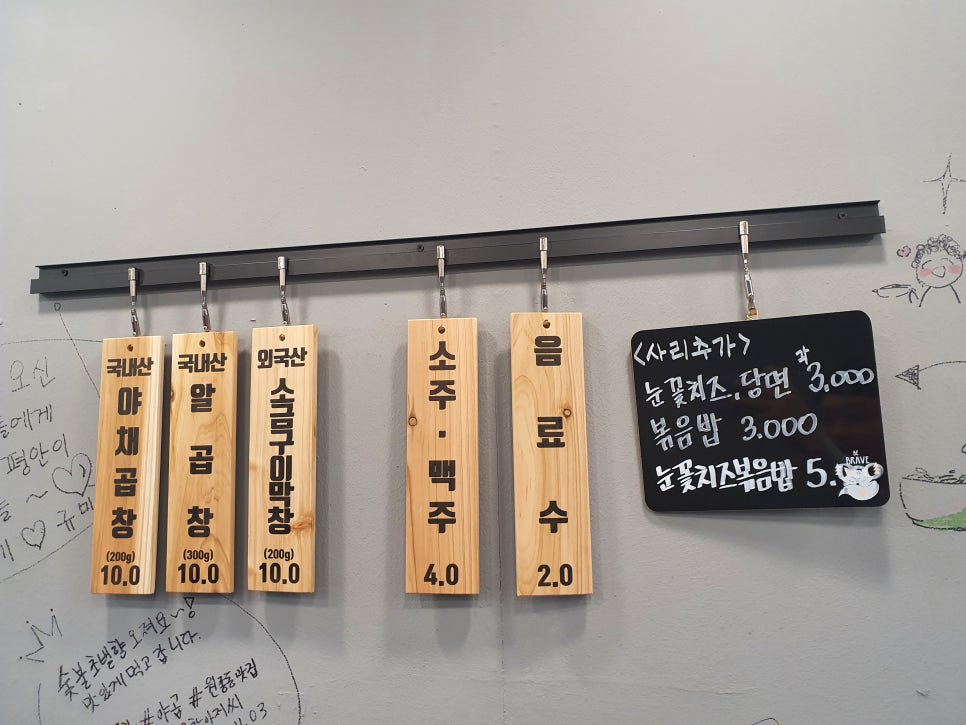 국내산
야채곱창
(200g)
10.0
국내산
알곱창
(300g)
10.0
외국산
소금구이막창
(200g)
10.0
소주·맥주
4.0
음료수
2.0
<사리추가>
눈꽃치즈, 당면 각 3,000
볶음밥 3.000
눈꽃치즈볶음밥 5.
BE
BRAVE
오신
들에게
평안이
숯불 초벌향 오져요~!
맛있게 먹고 갑니다.
#야곱 #원종동맛집